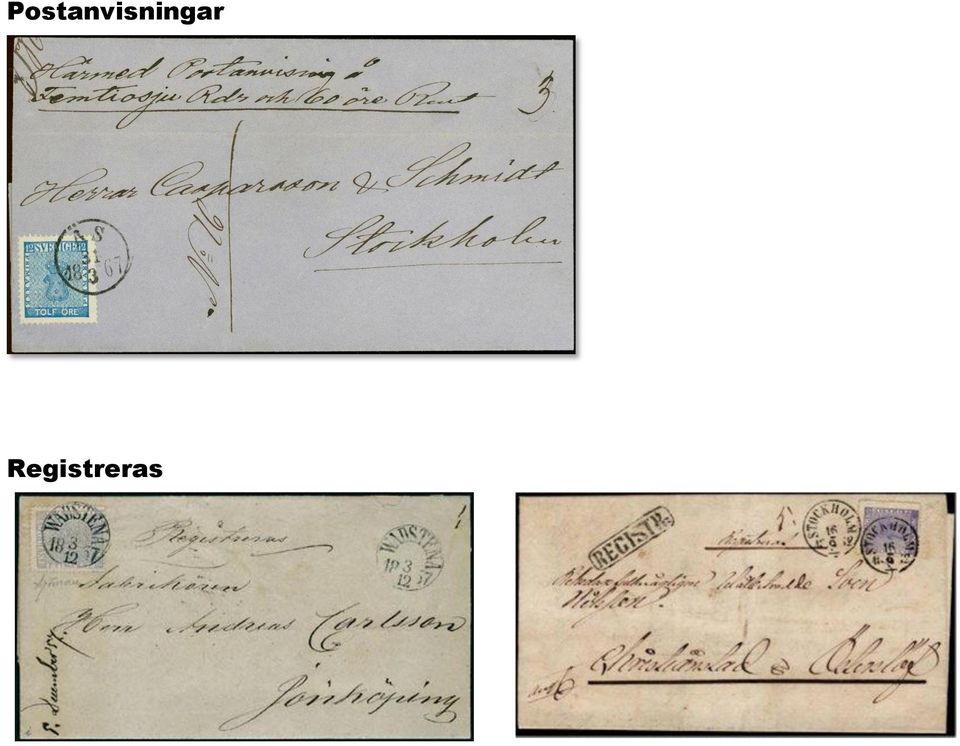 Postanvisningar
Härmed Postanvisning å
Femtiosju Rdr och 60 öre Rmt
3
Herrar Casparsson & Schmidt
Stockholm
No 16
ÅS
31
18 3 67
12 SVERIGE 12
TOLF ÖRE
Registreras
WADSTENA
18 3
12 57
Registreras
WADSTENA
18 3
12 57
Fabrikören
Herr Andreas Carlsson
Jönköping
REGISTR.
5.
Registreras
STOCKHOLM
16
STOCKHOLM
16
Sven
Nilsson.
Christianstad